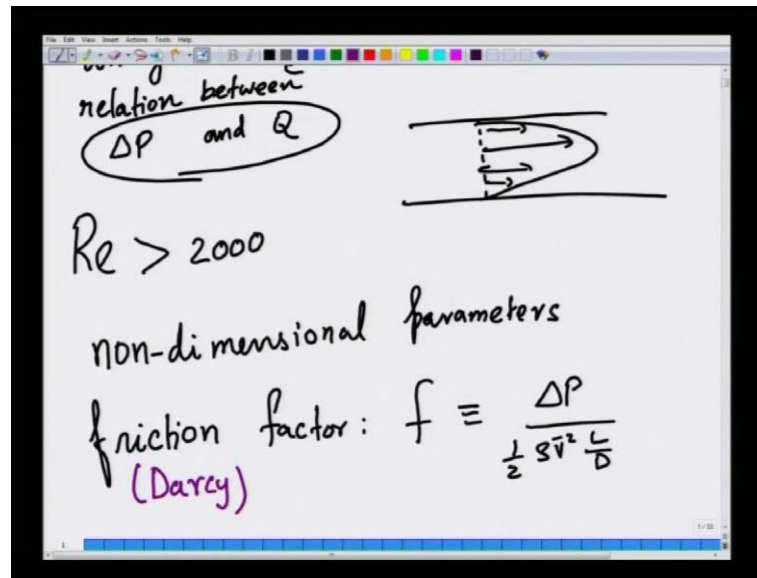 File Edit View Insert Actions Tools Help
relation between
ΔP and Q
Re > 2000
non-dimensional parameters
friction factor: f ≡ ΔP / (1/2 ρ V̄² L/D)
(Darcy)
1/33
1